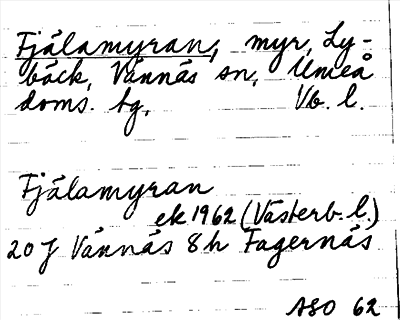 Fjälamyran, myr, Ly-
bäck, Vännäs sn, Umeå
doms. tg, Vb. l.
Fjälamyran
ek 1962 (Västerb. l.)
20 J Vännäs 8 h Fagernäs
ASO 62